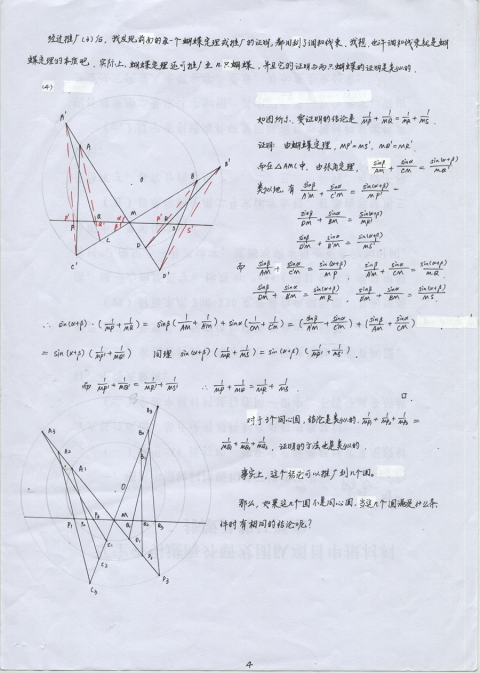 经过推广(3)后,我发现前面的每一个蝴蝶定理或推广的证明,都用到了调和线束.我想,也许调和线束就是蝴
蝶定理的本质吧.实际上,蝴蝶定理还可推广至n只蝴蝶,并且它的证明与两只蝴蝶的证明是类似的.
(4)
如图所示,要证明的结论是 1/MP + 1/MQ = 1/MR + 1/MS.
证明:由蝴蝶定理, MP'=MS', MQ'=MR'.
而在△AMC中,由张角定理, sinβ/AM + sinα/CM = sin(α+β)/MQ'
类似地,有 sinβ/A'M + sinα/C'M = sin(α+β)/MP'
sinβ/DM + sinα/BM = sin(α+β)/MR'
sinβ/D'M + sinα/B'M = sin(α+β)/MS'
而 sinβ/AM + sinα/C'M = sin(α+β)/MP , sinβ/A'M + sinα/CM = sin(α+β)/MQ
∴ sin(α+β)·(1/MP + 1/MQ) = sinβ(1/AM + 1/A'M) + sinα(1/CM + 1/C'M) = (sinβ/A'M + sinα/C'M) + (sinβ/AM + sinα/CM)
= sin(α+β)(1/MP' + 1/MQ') 同理 sin(α+β)(1/MR + 1/MS) = sin(α+β)(1/MR' + 1/MS').
而 1/MP' + 1/MQ' = 1/MR' + 1/MS' ∴ 1/MP + 1/MQ = 1/MR + 1/MS.
对于3个同心圆,结论是类似的. 1/MP₁ + 1/MP₂ + 1/MP₃ =
1/MQ₁ + 1/MQ₂ + 1/MQ₃ ,证明的方法也是类似的.
事实上,这个结论可以推广到n个圆.
那么,如果这几个圆不是同心圆,当这几个圆满足什么条
件时有相同的结论呢?
4